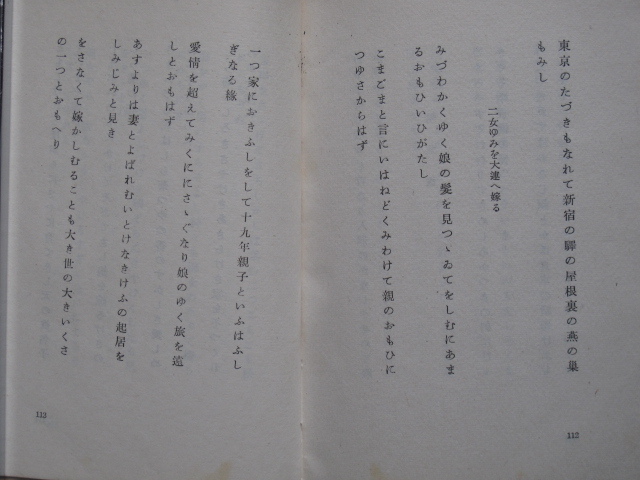 東京のたづきもなれて新宿の驛の屋根裏の燕の巣
もみし
二女ゆみを大連へ嫁る
みづわかくゆく娘の髮を見つゝゐてをしむにあま
るおもひいひがたし
こまごまと言にいはねどくみわけて親のおもひに
つゆさからはず
112
一つ家におきふしをして十九年親子といふはふし
ぎなる緣
愛情を超えてみくににさゝぐなり娘のゆく旅を遠
しとおもはず
あすよりは妻とよばれむいとけなきけふの起居を
しみじみと見き
をさなくて嫁かしむることも大き世の大きいくさ
の一つとおもへり
113